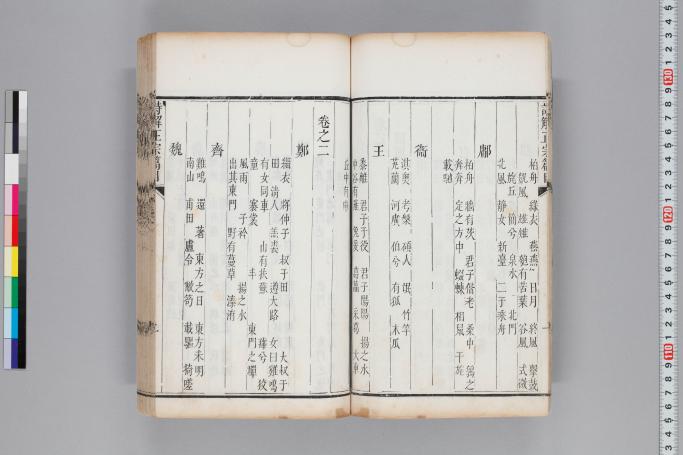 柏舟 綠衣 燕燕 日月 終風 擊鼓
凱風 雄雉 匏有苦葉 谷風 式微
旄丘 簡兮 泉水 北門
北風 靜女 新臺 二子乘舟
鄘
柏舟 牆有茨 君子偕老 桑中 鶉之
奔奔 定之方中 蝃蝀 相鼠 干旄
載馳
衞
淇奧 考槃 碩人 氓 竹竿
芄蘭 河廣 伯兮 有狐 木瓜
王
黍離 君子于役 君子陽陽 揚之水
中谷有蓷 兔爰 葛藟 采葛 大車
丘中有麻
卷之二
鄭
緇衣 將仲子 叔于田 大叔于
田 清人 羔裘 遵大路 女曰雞鳴
有女同車 山有扶蘇 蘀兮 狡
童 褰裳 丰 東門之墠
風雨 子衿 揚之水
出其東門 野有蔓草 溱洧
齊
雞鳴 還 著 東方之日 東方未明
南山 甫田 盧令 敝笱 載驅 猗嗟
魏
詩解正宗篇目